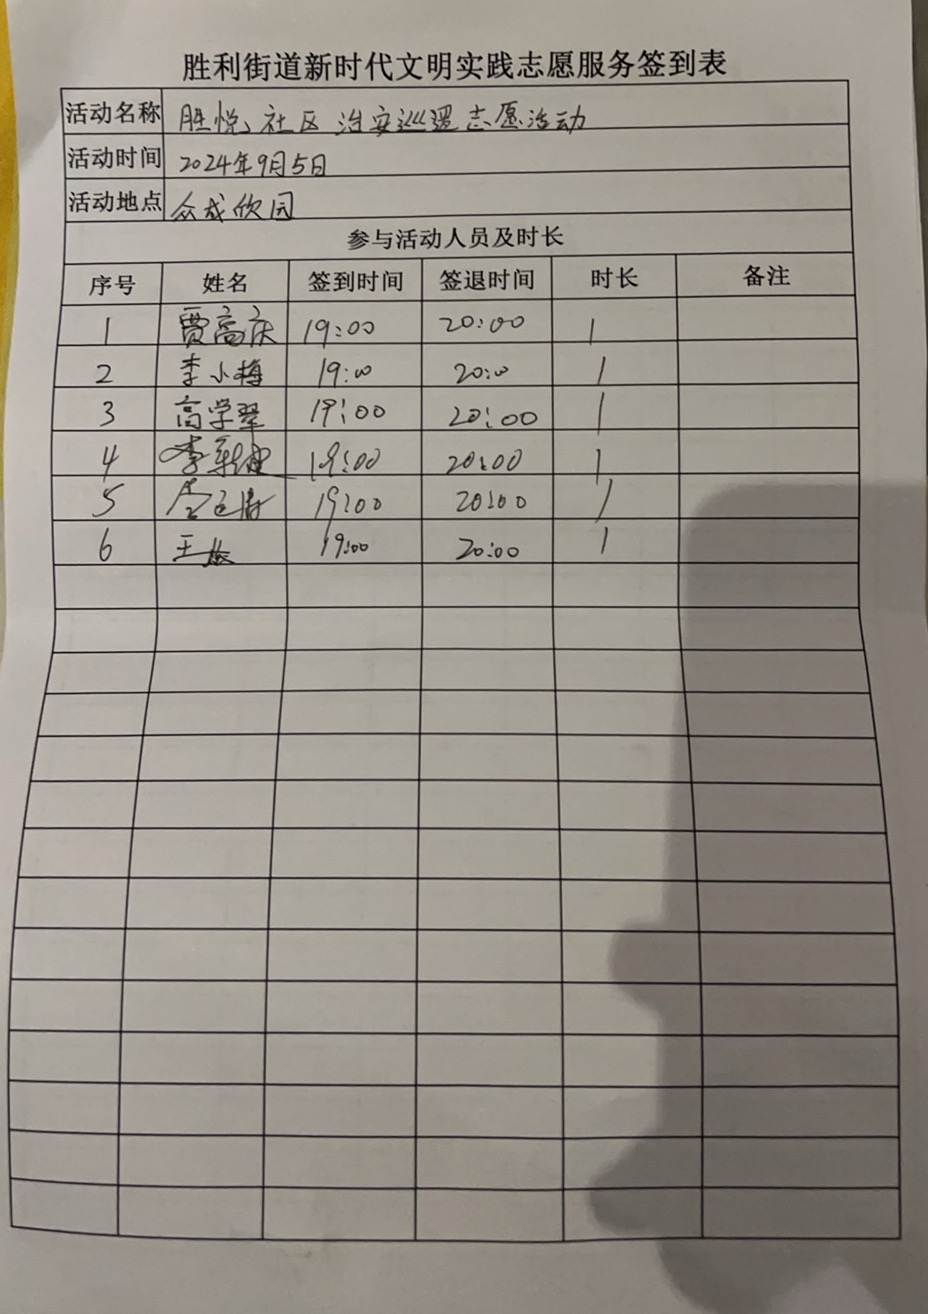 胜利街道新时代文明实践志愿服务签到表
活动名称 胜悦社区治安巡逻志愿活动
活动时间 2024年9月5日
活动地点 众成欣园
参与活动人员及时长
序号 姓名 签到时间 签退时间 时长 备注
1 贾高庆 19:00 20:00 1
2 李小梅 19:00 20:00 1
3 高学翠 19:00 20:00 1
4 李 19:00 20:00 1
5 19:00 20:00 1
6 王 19:00 20:00 1